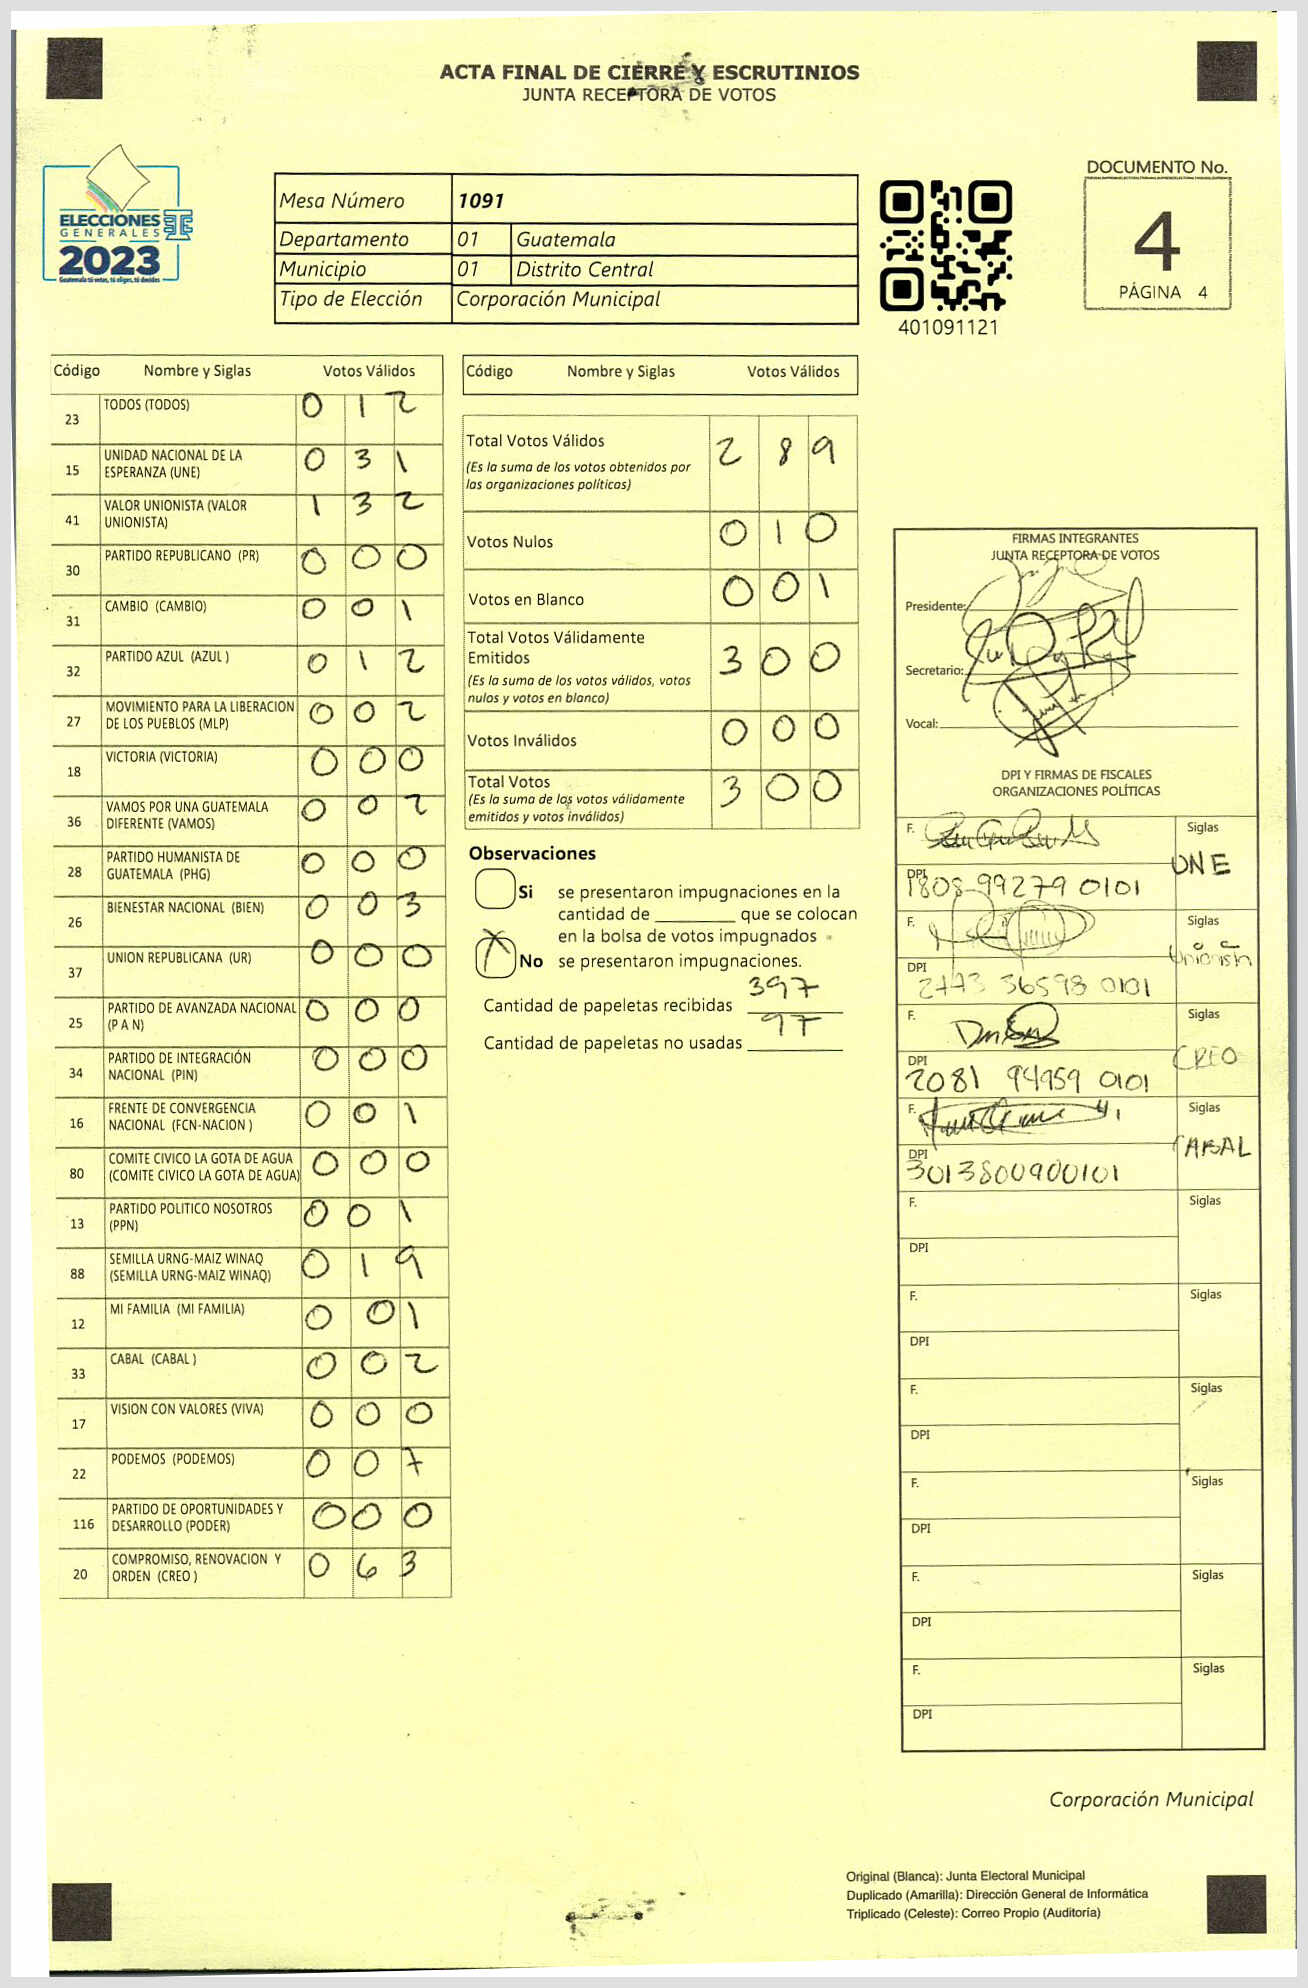 ACTA FINAL DE CIERRE Y ESCRUTINIOS
JUNTA RECEPTORA DE VOTOS
ELECCIONES
GENERALES
2023
Guatemala tú votas, tú eliges, tú decides
Mesa Número 1091
Departamento 01 Guatemala
Municipio 01 Distrito Central
Tipo de Elección Corporación Municipal
401091121
DOCUMENTO No.
4
PÁGINA 4
Código Nombre y Siglas Votos Válidos
23 TODOS (TODOS) 0 1 2
15 UNIDAD NACIONAL DE LA
ESPERANZA (UNE) 0 3 1
41 VALOR UNIONISTA (VALOR
UNIONISTA) 1 3 2
30 PARTIDO REPUBLICANO (PR) 0 0 0
31 CAMBIO (CAMBIO) 0 0 1
32 PARTIDO AZUL (AZUL ) 0 1 2
27 MOVIMIENTO PARA LA LIBERACION
DE LOS PUEBLOS (MLP) 0 0 2
18 VICTORIA (VICTORIA) 0 0 0
36 VAMOS POR UNA GUATEMALA
DIFERENTE (VAMOS) 0 0 2
28 PARTIDO HUMANISTA DE
GUATEMALA (PHG) 0 0 0
26 BIENESTAR NACIONAL (BIEN) 0 0 3
37 UNION REPUBLICANA (UR) 0 0 0
25 PARTIDO DE AVANZADA NACIONAL
(P A N) 0 0 0
34 PARTIDO DE INTEGRACIÓN
NACIONAL (PIN) 0 0 0
16 FRENTE DE CONVERGENCIA
NACIONAL (FCN-NACION ) 0 0 1
80 COMITE CIVICO LA GOTA DE AGUA
(COMITE CIVICO LA GOTA DE AGUA) 0 0 0
13 PARTIDO POLITICO NOSOTROS
(PPN) 0 0 1
88 SEMILLA URNG-MAIZ WINAQ
(SEMILLA URNG-MAIZ WINAQ) 0 1 9
12 MI FAMILIA (MI FAMILIA) 0 0 1
33 CABAL (CABAL ) 0 0 2
17 VISION CON VALORES (VIVA) 0 0 0
22 PODEMOS (PODEMOS) 0 0 7
116 PARTIDO DE OPORTUNIDADES Y
DESARROLLO (PODER) 0 0 0
20 COMPROMISO, RENOVACION Y
ORDEN (CREO ) 0 6 3
Código Nombre y Siglas Votos Válidos
Total Votos Válidos 2 8 9
(Es la suma de los votos obtenidos por
las organizaciones políticas)
Votos Nulos 0 1 0
Votos en Blanco 0 0 1
Total Votos Válidamente
Emitidos 3 0 0
(Es la suma de los votos válidos, votos
nulos y votos en blanco)
Votos Inválidos 0 0 0
Total Votos 3 0 0
(Es la suma de los votos válidamente
emitidos y votos inválidos)
Observaciones
Si se presentaron impugnaciones en la
cantidad de ________ que se colocan
en la bolsa de votos impugnados
X No se presentaron impugnaciones.
Cantidad de papeletas recibidas 397
Cantidad de papeletas no usadas 97
FIRMAS INTEGRANTES
JUNTA RECEPTORA DE VOTOS
Presidente:
Secretario:
Vocal:
DPI Y FIRMAS DE FISCALES
ORGANIZACIONES POLÍTICAS
F. Siglas
UNE
DPI 1808-99279 0101
F. Siglas
Unionista
DPI 2773 36598 0101
F. Siglas
CREO
DPI 2081 94959 0101
F. Siglas
CABAL
DPI 3013800900101
F. Siglas
DPI
F. Siglas
DPI
F. Siglas
DPI
F. Siglas
DPI
F. Siglas
DPI
F. Siglas
DPI
Corporación Municipal
Original (Blanca): Junta Electoral Municipal
Duplicado (Amarilla): Dirección General de Informática
Triplicado (Celeste): Correo Propio (Auditoría)